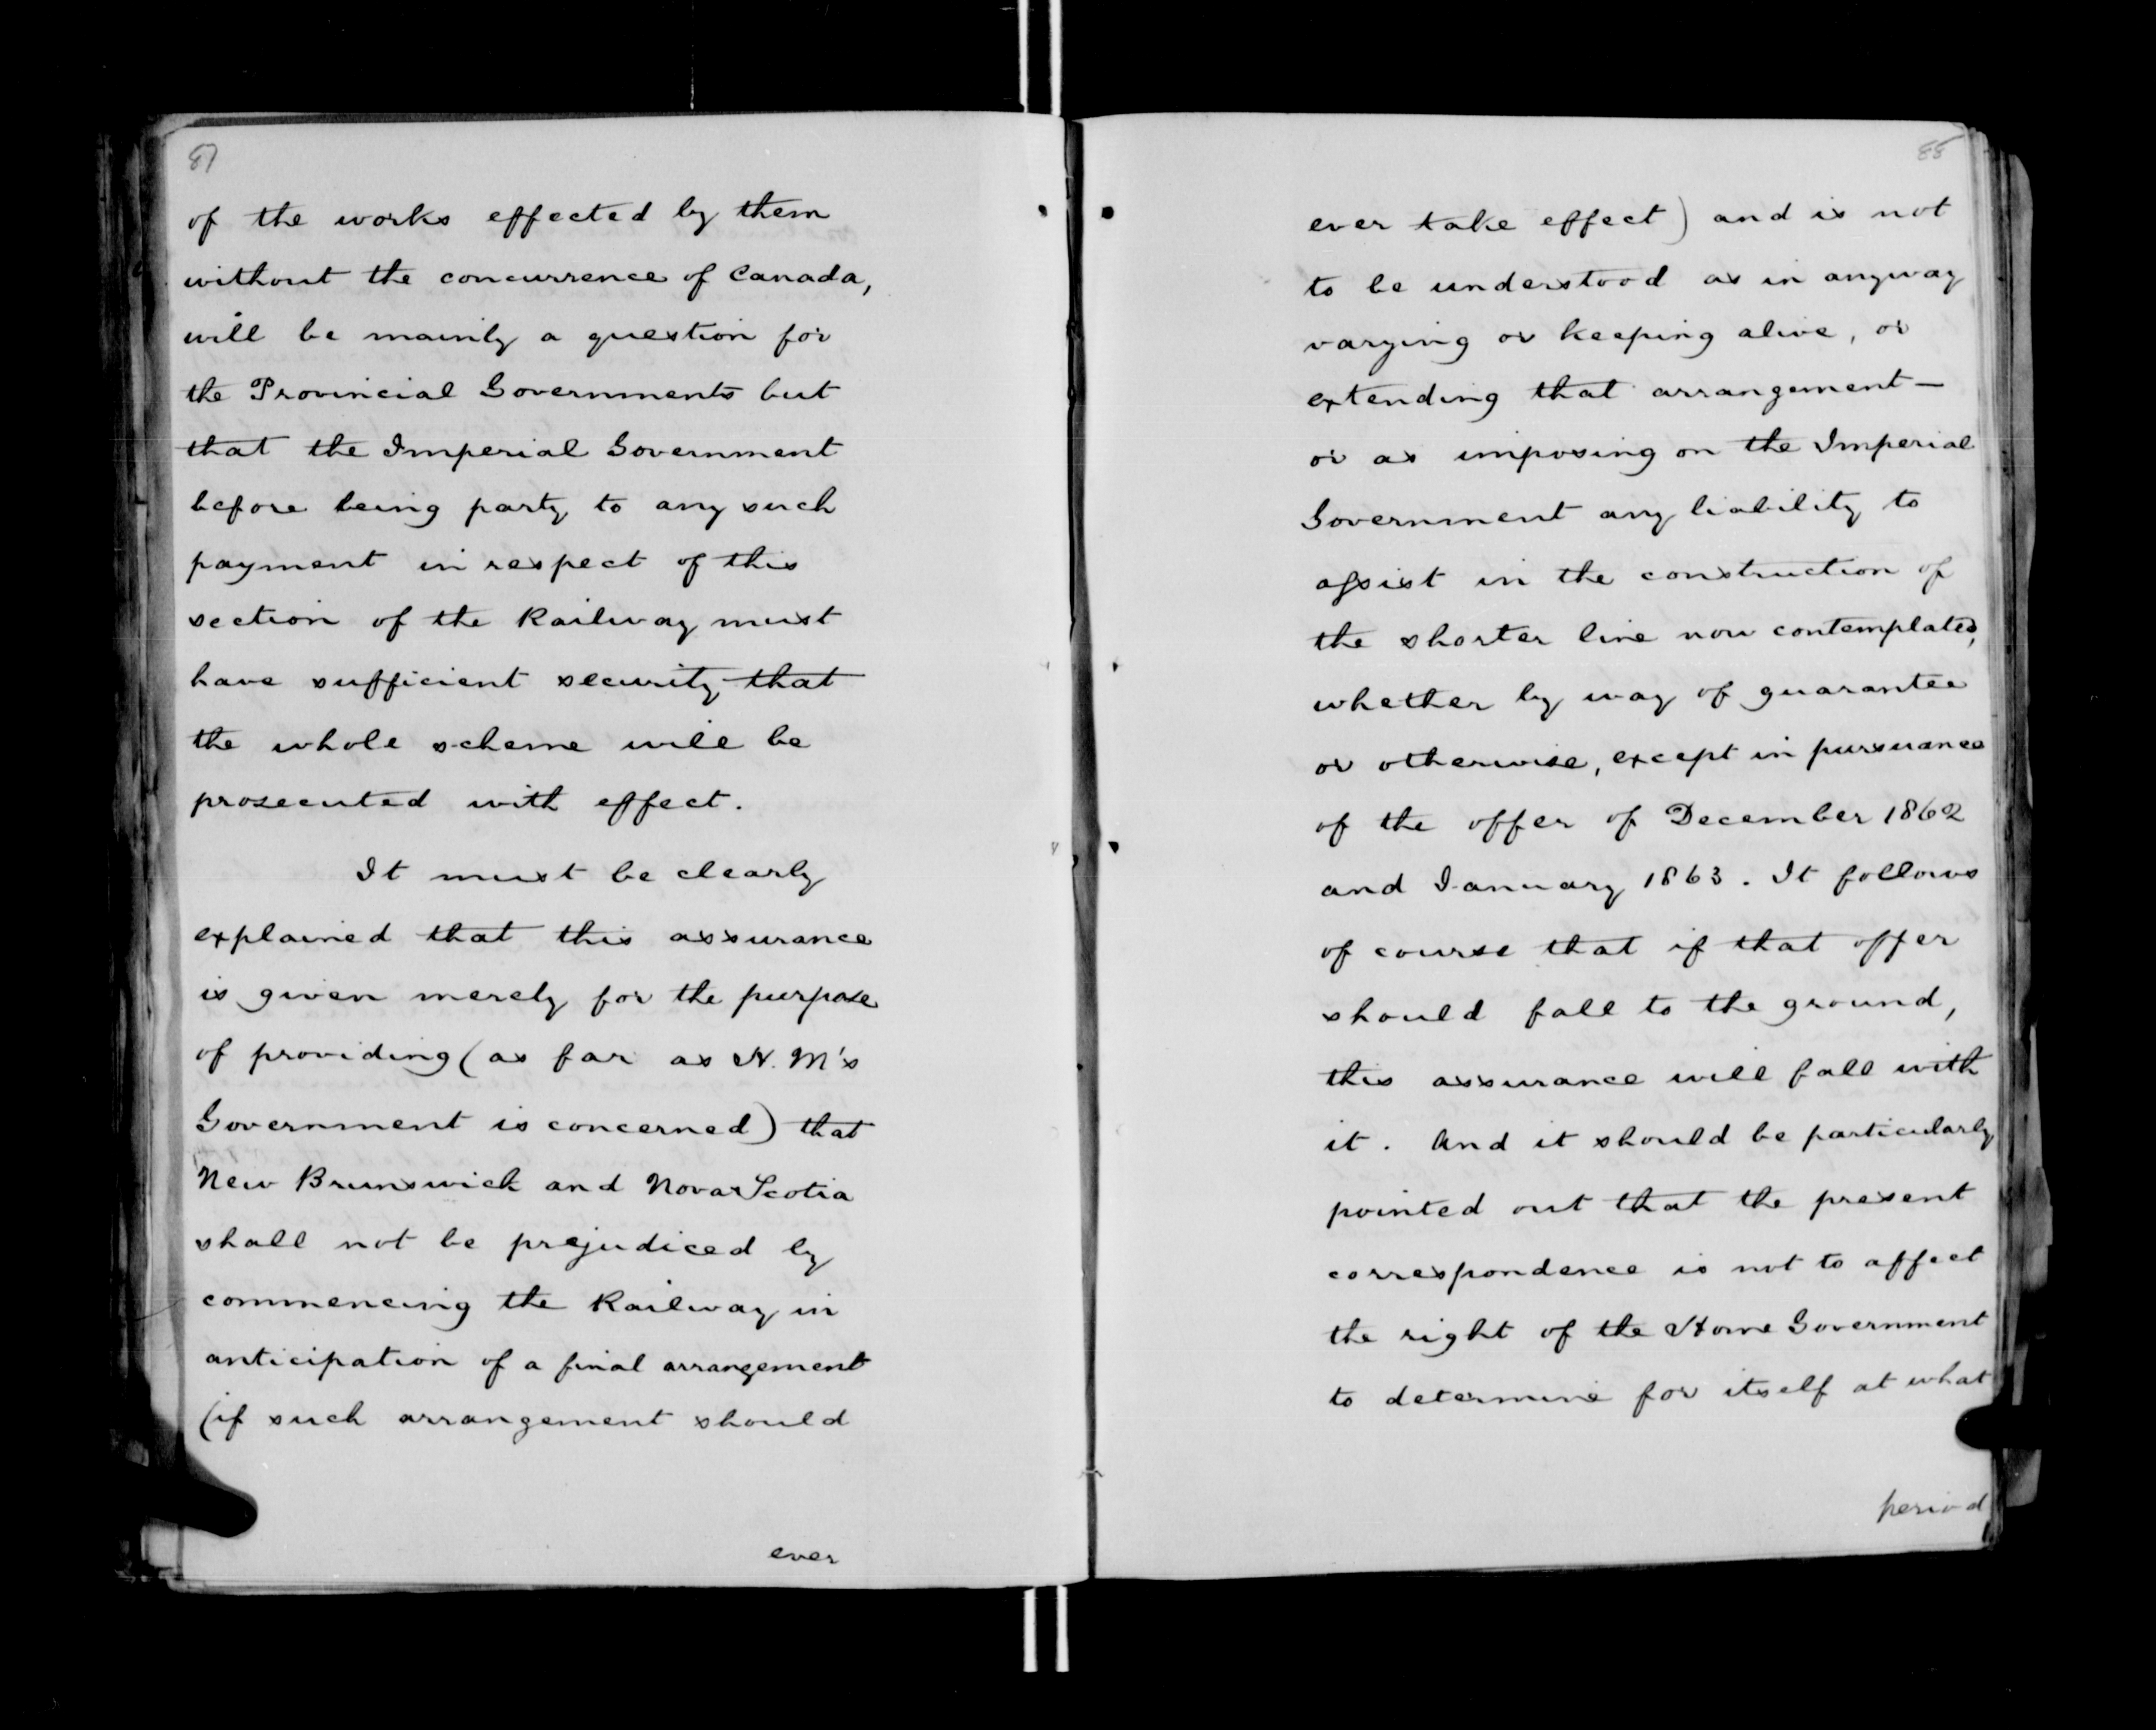 87
of the works effected by them
without the concurrence of Canada,
will be mainly a question for
the Provincial Governments but
that the Imperial Government
before being party to any such
payment in respect of this
section of the Railway must
have sufficient security that
the whole scheme will be
prosecuted with effect.
It must be clearly
explained that this assurance
is given merely for the purpose
of providing (as far as H. M's
Government is concerned) that
New Brunswick and Nova Scotia
shall not be prejudiced by
commencing the Railway in
anticipation of a final arrangement
(if such arrangement should
ever
88
ever take effect) and is not
to be understood as in anyway
varying or keeping alive, or
extending that arrangement—
or as imposing on the Imperial
Government any liability to
assist in the construction of
the shorter line now contemplated,
whether by way of guarantee
or otherwise, except in pursuance
of the offer of December 1862
and January 1863. It follows
of course that if that offer
should fall to the ground,
this assurance will fall with
it. And it should be particularly
pointed out that the present
correspondence is not to affect
the right of the Home Government
to determine for itself at what
period